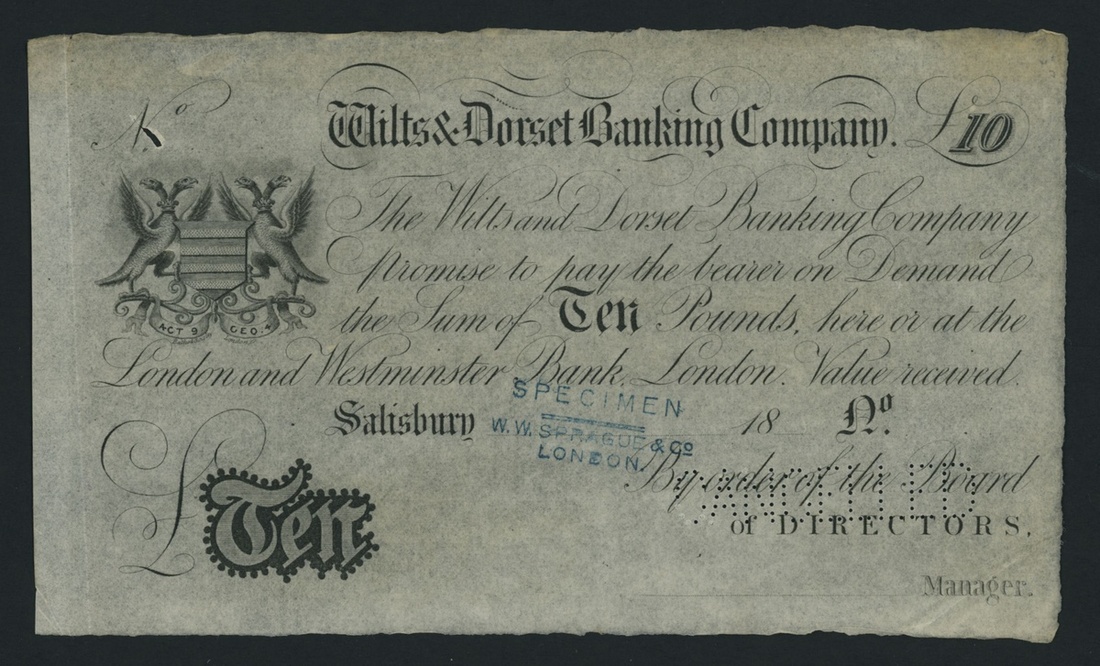 No
Wilts & Dorset Banking Company. £10
The Wilts and Dorset Banking Company
promise to pay the bearer on Demand
ACT 9 GEO. 4
the Sum of Ten Pounds, here or at the
London and Westminster Bank, London. Value received.
SPECIMEN
Salisbury 18 No.
W.W. SPRAGUE & Co
LONDON.
By order of the Board
CANCELLED
of DIRECTORS.
£ Ten
Manager.